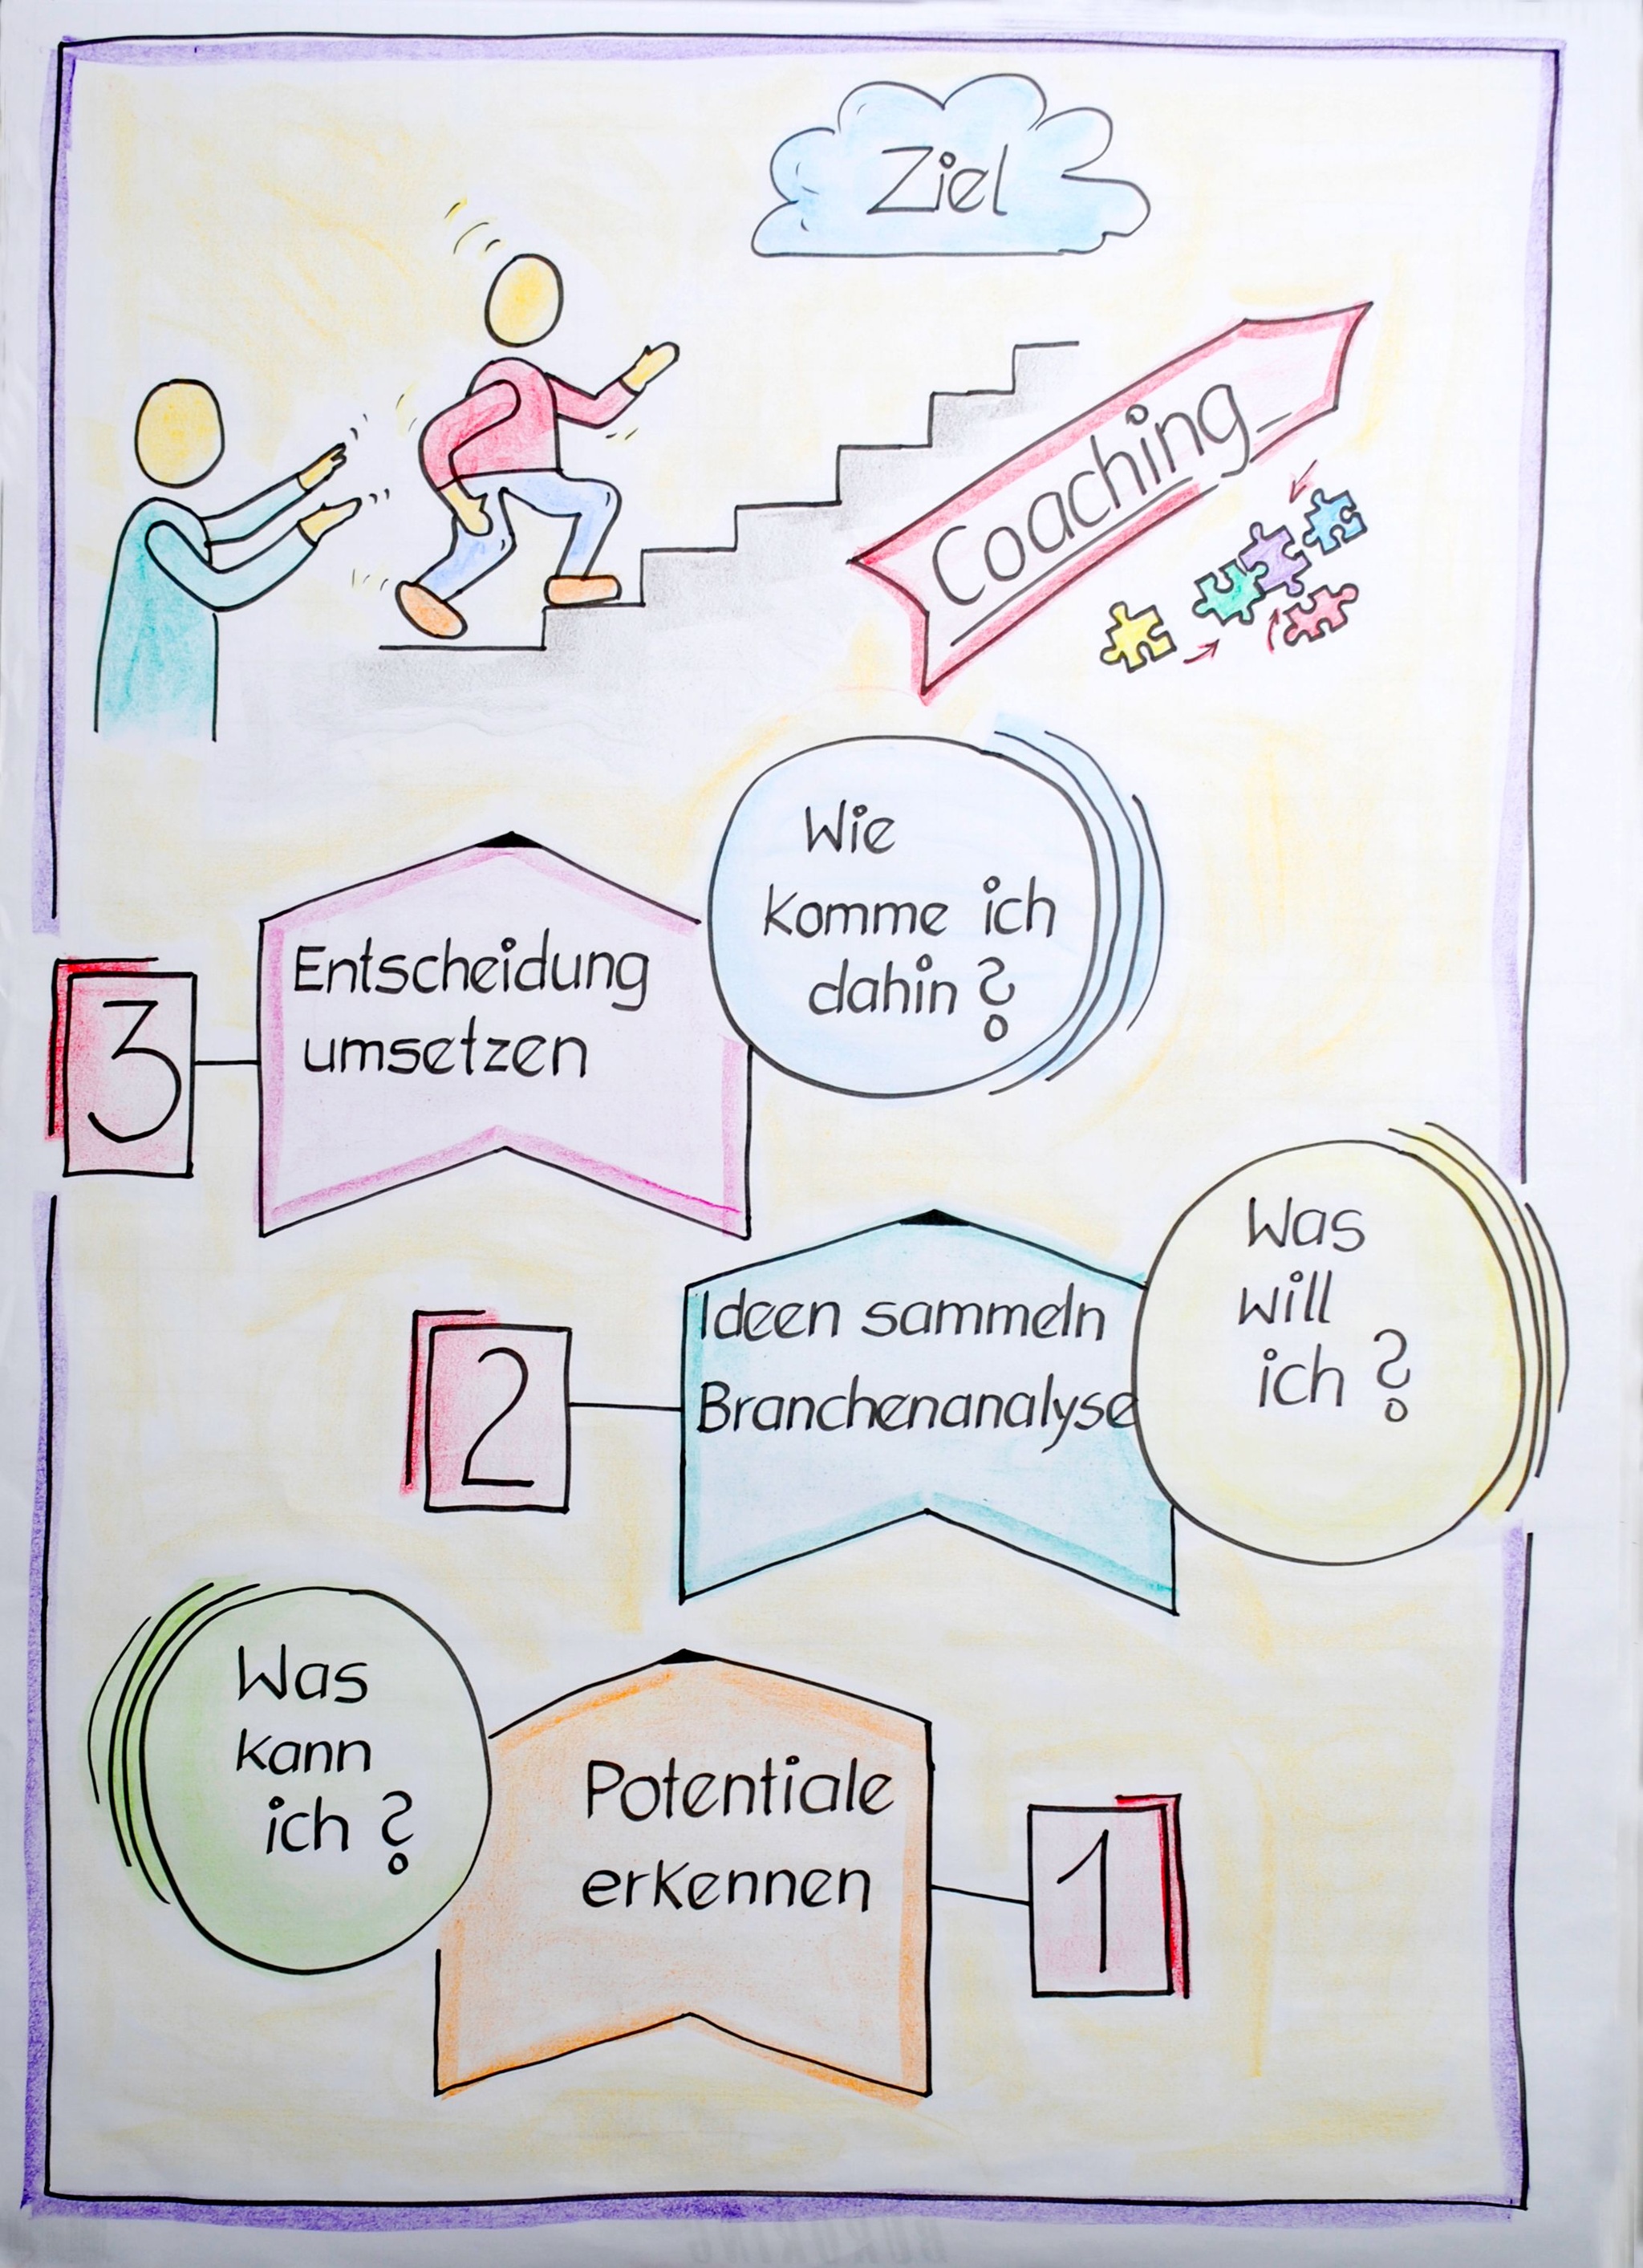 Ziel
Coaching
Wie
komme ich
dahin?
3
Entscheidung
umsetzen
Was
will
ich?
2
Ideen sammeln
Branchenanalyse
Was
kann
ich?
Potentiale
erkennen
1